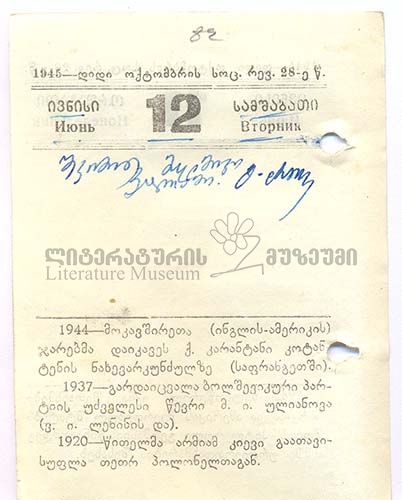 82
1945—დიდი ოქტომბრის სოც. რევ. 28-ე წ.
ივნისი 12 სამშაბათი
Июнь Вторник
ლიტერატურის მუზეუმი
Literature Museum
1944—მოკავშირეთა (ინგლის-ამერიკის)
ჯარებმა დაიკავეს ქ. კარანტანი კოტან-
ტენის ნახევარკუნძულზე (საფრანგეთში).
1937—გარდაიცვალა ბოლშევიკური პარ-
ტიის უძველესი წევრი მ. ი. ულიანოვა
(ვ. ი. ლენინის და).
1920—წითელმა არმიამ კიევი გაათავი-
სუფლა თეთრ პოლონელთაგან.